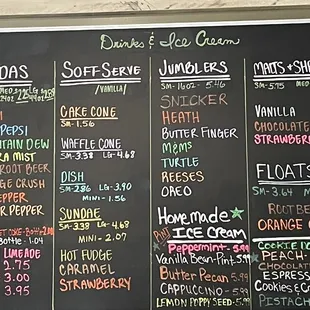 Drinks & Ice Cream
DAS
PEPSI
TAIN DEW
RA MIST
ROOT BEER
GE CRUSH
EPPER
R PEPPER
LIMEADE
2.75
3.00
3.95
SOFT SERVE
/VANILLA/
CAKE CONE
SM-1.56
WAFFLE CONE
SM-3.38 LG-4.68
DISH
SM-2.86 LG-3.90
MINI-1.56
SUNDAE
SM-3.38 LG-4.68
MINI-2.07
HOT FUDGE
CARAMEL
STRAWBERRY
JUMBLERS
SM-16oz-5.46
SNICKER
HEATH
BUTTER FINGER
M&MS
TURTLE
REESES
OREO
Homemade
ICE CREAM
Peppermint-5.99
Vanilla Bean-Pint-5.99
Butter Pecan 5.99
CAPPUCCINO-5.99
LEMON POPPY SEED-5.99
MALTS + SH
SM-5.75 MED
VANILLA
CHOCOLATE
STRAWBERR
FLOATS
SM-3.64
ROOTBE
ORANGE C
COOKIE DO
PEACH-
CHOCOLAT
ESPRESS
Cookies & Cr
PISTACH